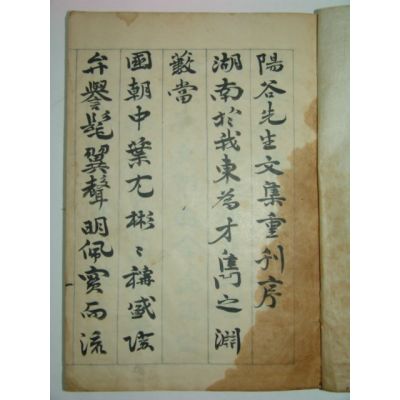 陽谷先生文集重刊序
湖南於我東為才雋之淵
藪當
國朝中葉尤彬〻稱盛
弁譽髦翼聲明佩實而流